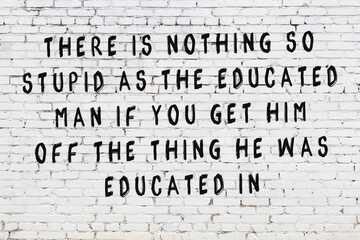 THERE IS NOTHING SO
STUPID AS THE EDUCATED
MAN IF YOU GET HIM
OFF THE THING HE WAS
EDUCATED IN